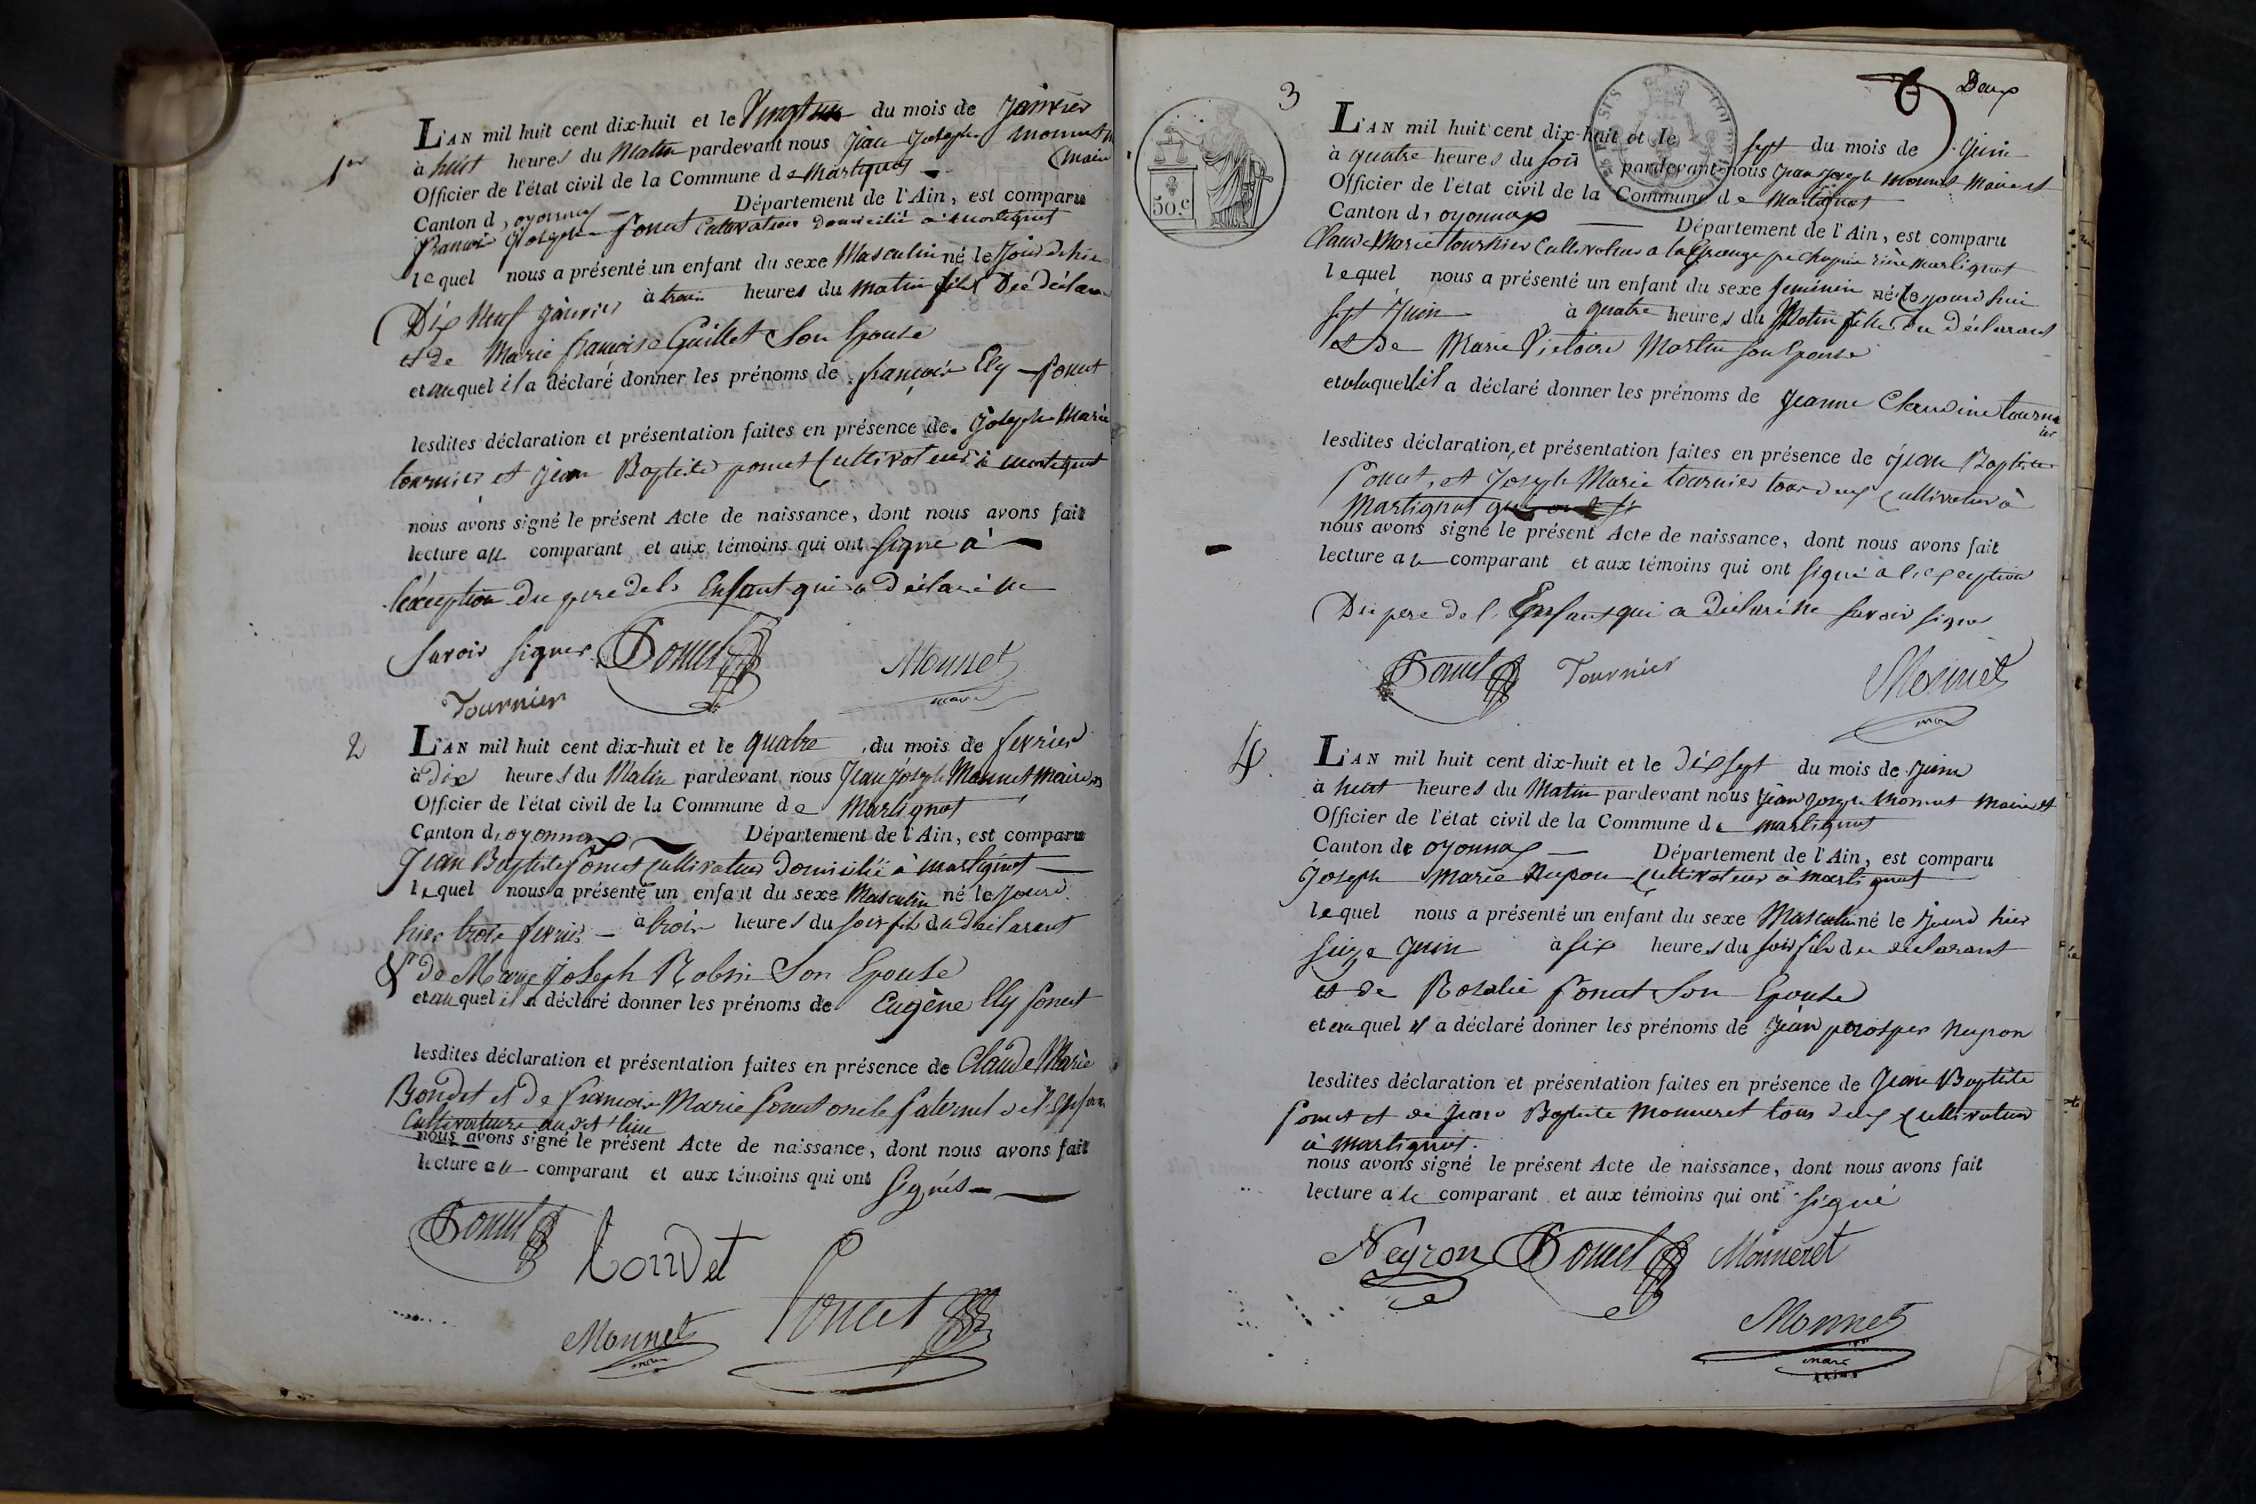 1er
L'AN mil huit cent dix-huit et le Vingt un du mois de Janvier
à huit heures du Matin pardevant nous Jean Joseph Monnet
Maire
Officier de l'état civil de la Commune de Martignat
Canton d'oyonnax Département de l'Ain, est comparu
françois Joseph Poncet Cultivateur domicilié à Martignat
lequel nous a présenté un enfant du sexe Masculin né le Jour d'hier
Dix Neuf Janvier à trois heures du matin fils Du déclarant
et de Marie françoise Guillet Son Epouse
et auquel il a déclaré donner les prénoms de françois Ely Poncet
lesdites déclaration et présentation faites en présence de Joseph Marie
tournier et Jean Baptiste poncet Cultivateurs à Martignat
nous avons signé le présent Acte de naissance, dont nous avons fait
lecture au comparant et aux témoins qui ont signé à
l'éxception Du pere de l'Enfant qui a Déclaré ne
Savoir Signer Poncet Monnet
maire
Tournier
2
L'AN mil huit cent dix-huit et le quatre du mois de fevrier
à dix heures du Matin pardevant nous Jean Joseph Monnet Maire
Officier de l'état civil de la Commune de Martignat
Canton d'oyonnax Département de l'Ain, est comparu
Jean Baptiste Poncet Cultivateur Domicilié à Martignat
lequel nous a présenté un enfant du sexe Masculin né le Jourd
hier trois fevrier à trois heures du soir fils du déclarant
& de Marie Joseph Robin Son Epouse
et auquel il a déclaré donner les prénoms de Eugène Ely Poncet
lesdites déclaration et présentation faites en présence de Claude Marie
Bondet et de françois Marie Poncet oncle Paternel de l'Enfant
Cultivateurs au dit lieu
nous avons signé le présent Acte de naissance, dont nous avons fait
lecture au comparant et aux témoins qui ont Signés
Poncet Bondet
Monnet Poncet
maire
Deux
50.c
3
L'AN mil huit cent dix-huit et le sept du mois de Juin
à quatre heures du soir pardevant nous Jean Joseph Monnet Maire et
Officier de l'état civil de la Commune de Martignat
Canton d'oyonnax Département de l'Ain, est comparu
Claude Marie tournier Cultivateur a la Grange rière Martignat
lequel nous a présenté un enfant du sexe feminin né le Jourd'hui
sept Juin à quatre heures du Matin fille du Déclarant
et de Marie Victoire Martin son Epouse
et à laquelle il a déclaré donner les prénoms de Jeanne Claudine tournier
lesdites déclaration, et présentation faites en présence de Jean Baptiste
Poncet, et Joseph Marie tournier tous deux Cultivateur à
Martignat
nous avons signé le présent Acte de naissance, dont nous avons fait
lecture au comparant et aux témoins qui ont signé à l'exception
Du pere de l'Enfant qui a Déclaré ne Savoir signer
Poncet Tournier Monnet
maire
4
L'AN mil huit cent dix-huit et le Dix sept du mois de Juin
à huit heures du Matin pardevant nous Jean Joseph Monnet Maire et
Officier de l'état civil de la Commune de Martignat
Canton de oyonnax Département de l'Ain, est comparu
Joseph Marie Neyron Cultivateur à Martignat
lequel nous a présenté un enfant du sexe Masculin né le Jourd hier
Seize Juin à six heures du soir fils du déclarant
et de Rosalie Poncet Son Epouse
et auquel il a déclaré donner les prénoms de Jean prosper Neyron
lesdites déclaration et présentation faites en présence de Jean Baptiste
Poncet et de Jean Baptiste Monneret tous deux Cultivateur
à Martignat.
nous avons signé le présent Acte de naissance, dont nous avons fait
lecture au comparant et aux témoins qui ont signé
Neyron Poncet Monneret
Monnet
maire